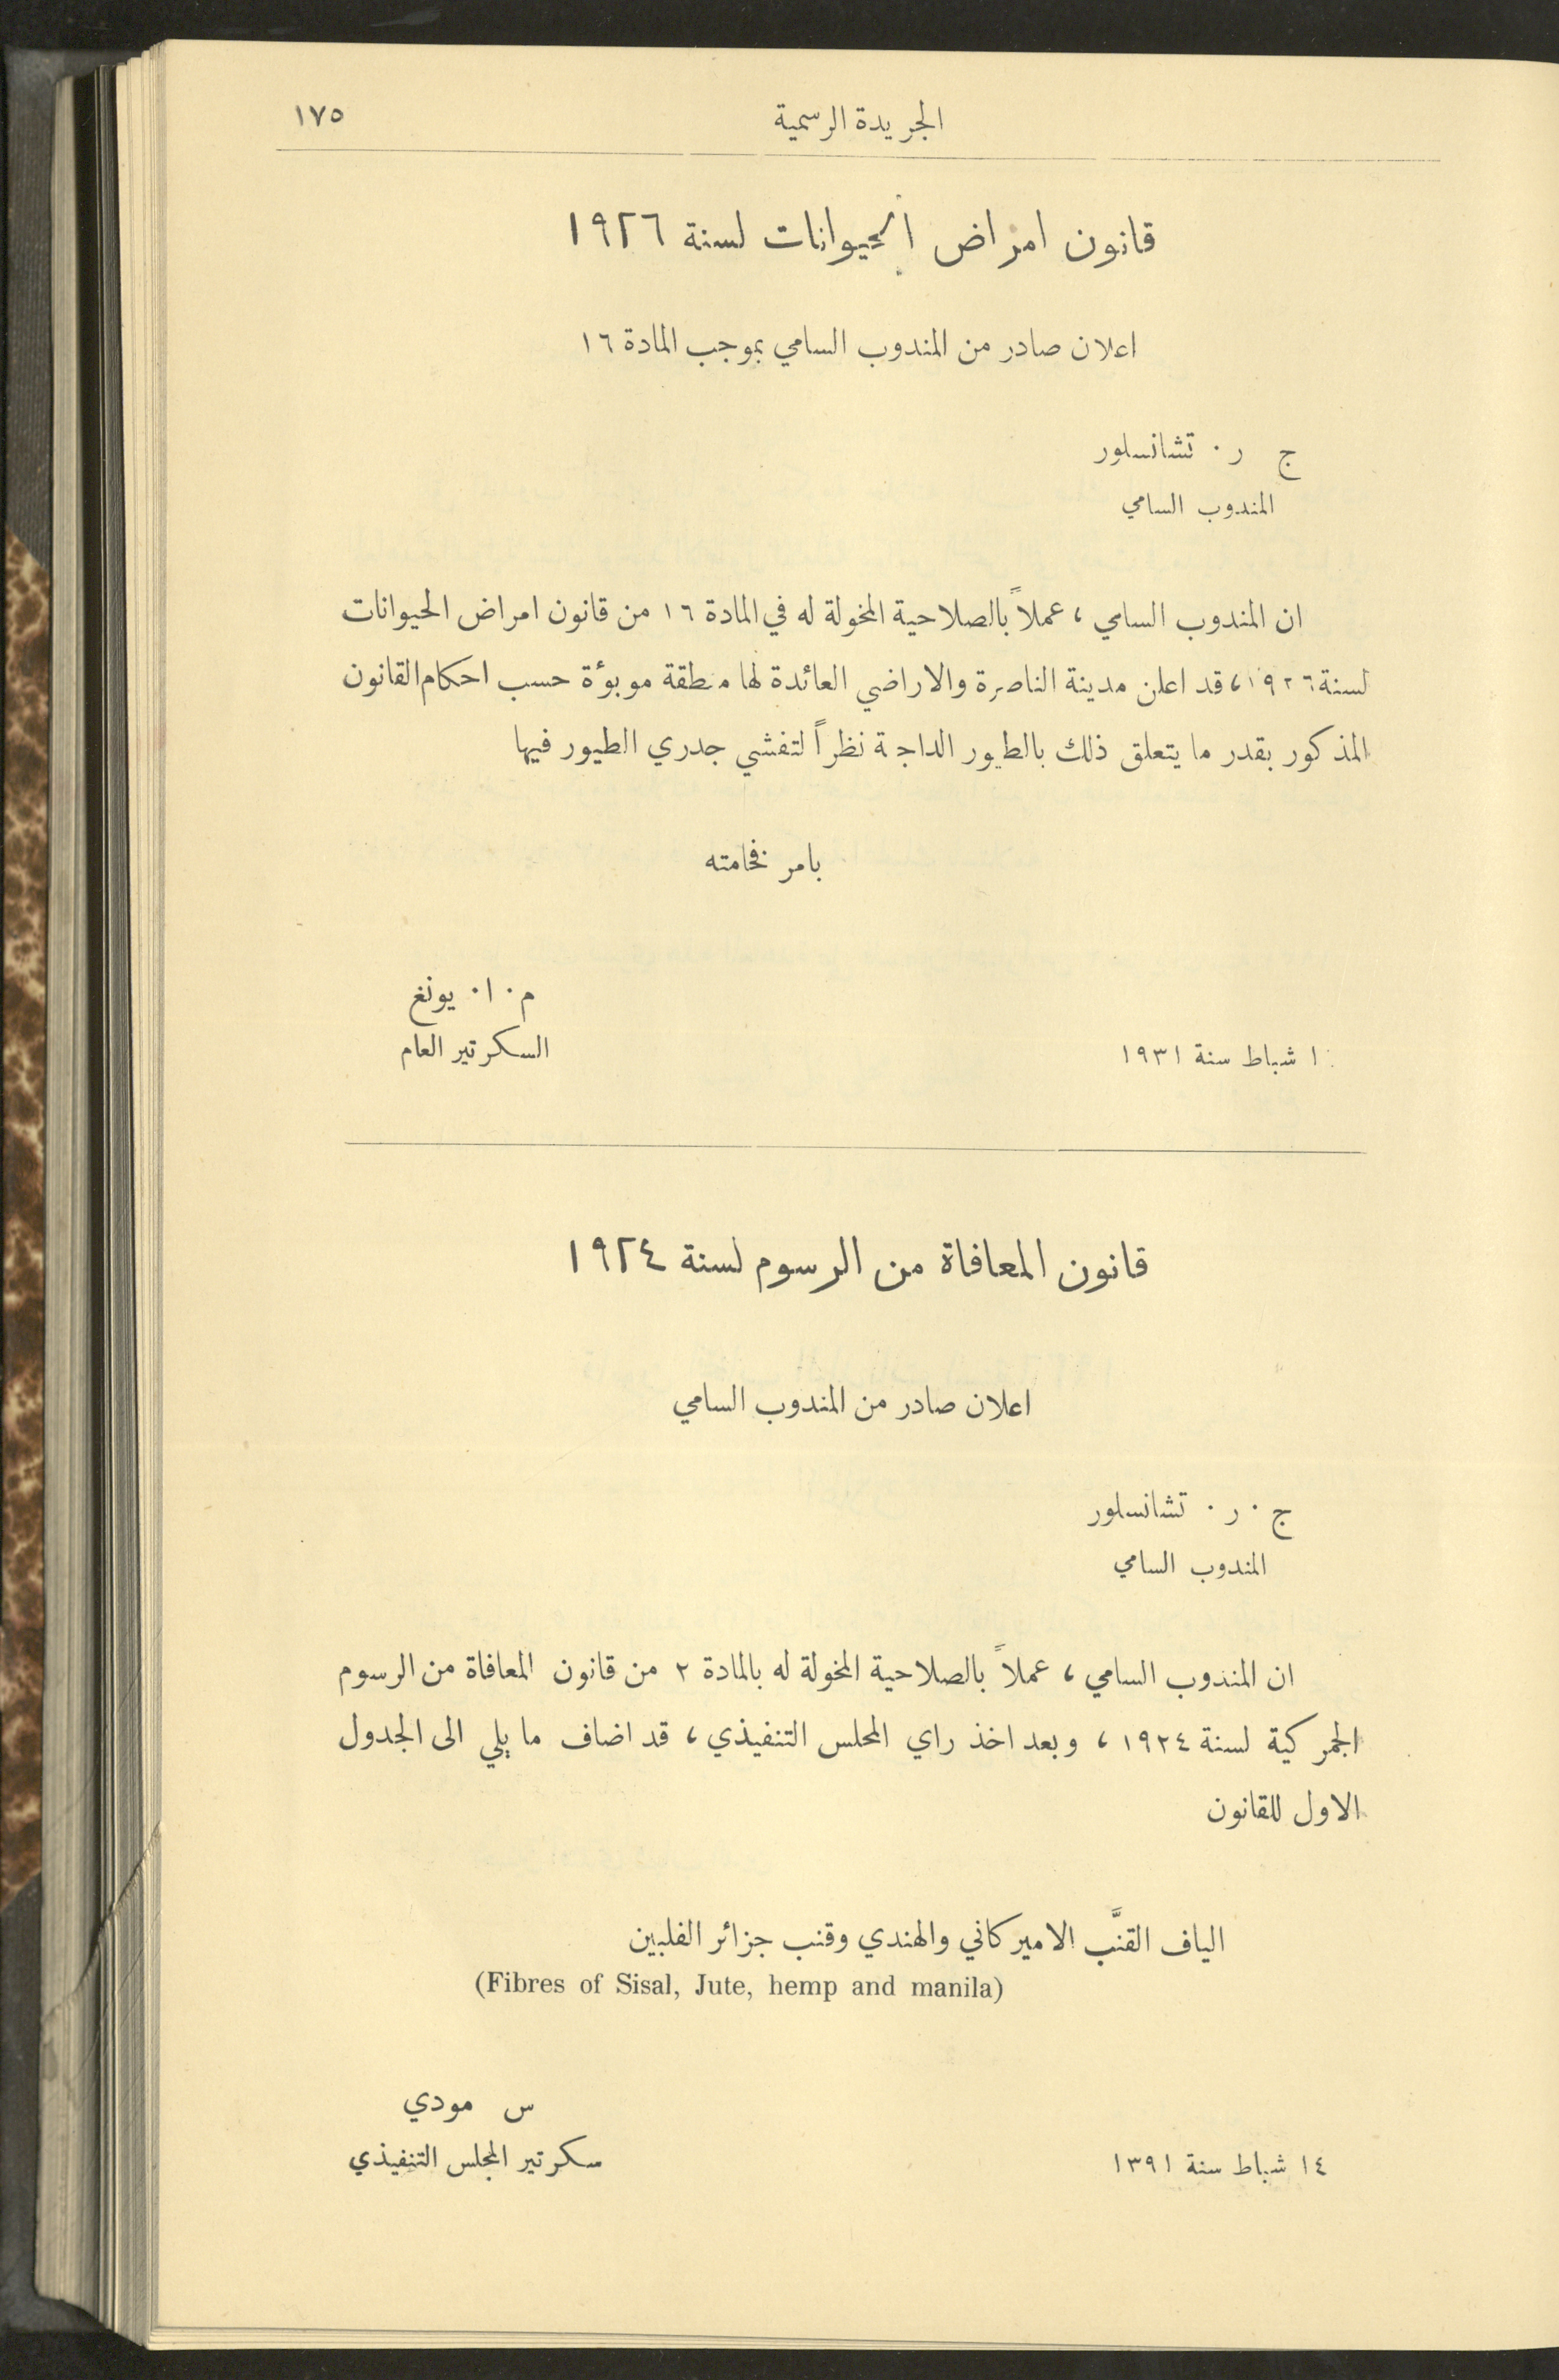 الجريدة الرسمية
١٧٥
قانون امراض الحيوانات لسنة ١٩٢٦
اعلان صادر من المندوب السامي بموجب المادة ١٦
ج ر٠ تشانسلور
المندوب السامي
ان المندوب السامي ، عملاً بالصلاحية المخولة له في المادة ١٦ من قانون امراض الحيوانات
لسنة ١٩٢٦، قد اعلن مدينة الناصرة والاراضي العائدة لها منطقة موبوٴة حسب احكام القانون
المذكور بقدر ما يتعلق ذلك بالطيور الداجنة نظراً لتفشي جدري الطيور فيها
بامر فخامته
م٠ ا٠ يونغ
السكرتير العام
شباط سنة ١٩٣١
قانون المعافاة من الرسوم لسنة ١٩٢٤
اعلان صادر من المندوب السامي
ج٠ ر٠ تشانسلور
المندوب السامي
ان المندوب السامي ، عملاً بالصلاحية المخولة له بالمادة ٢ من قانون المعافاة من الرسوم
الجمركية لسنة ١٩٢٤ ، وبعد اخذ راي المجلس التنفيذي ، قد اضاف ما يلي الى الجدول
الاول للقانون
الياف القنَّب الاميركاني والهندي وقنب جزائر الفلبين
(Fibres of Sisal, Jute, hemp and manila)
س مودي
سكرتير المجلس التنفيذي
١٤ شباط سنة ١٣٩١